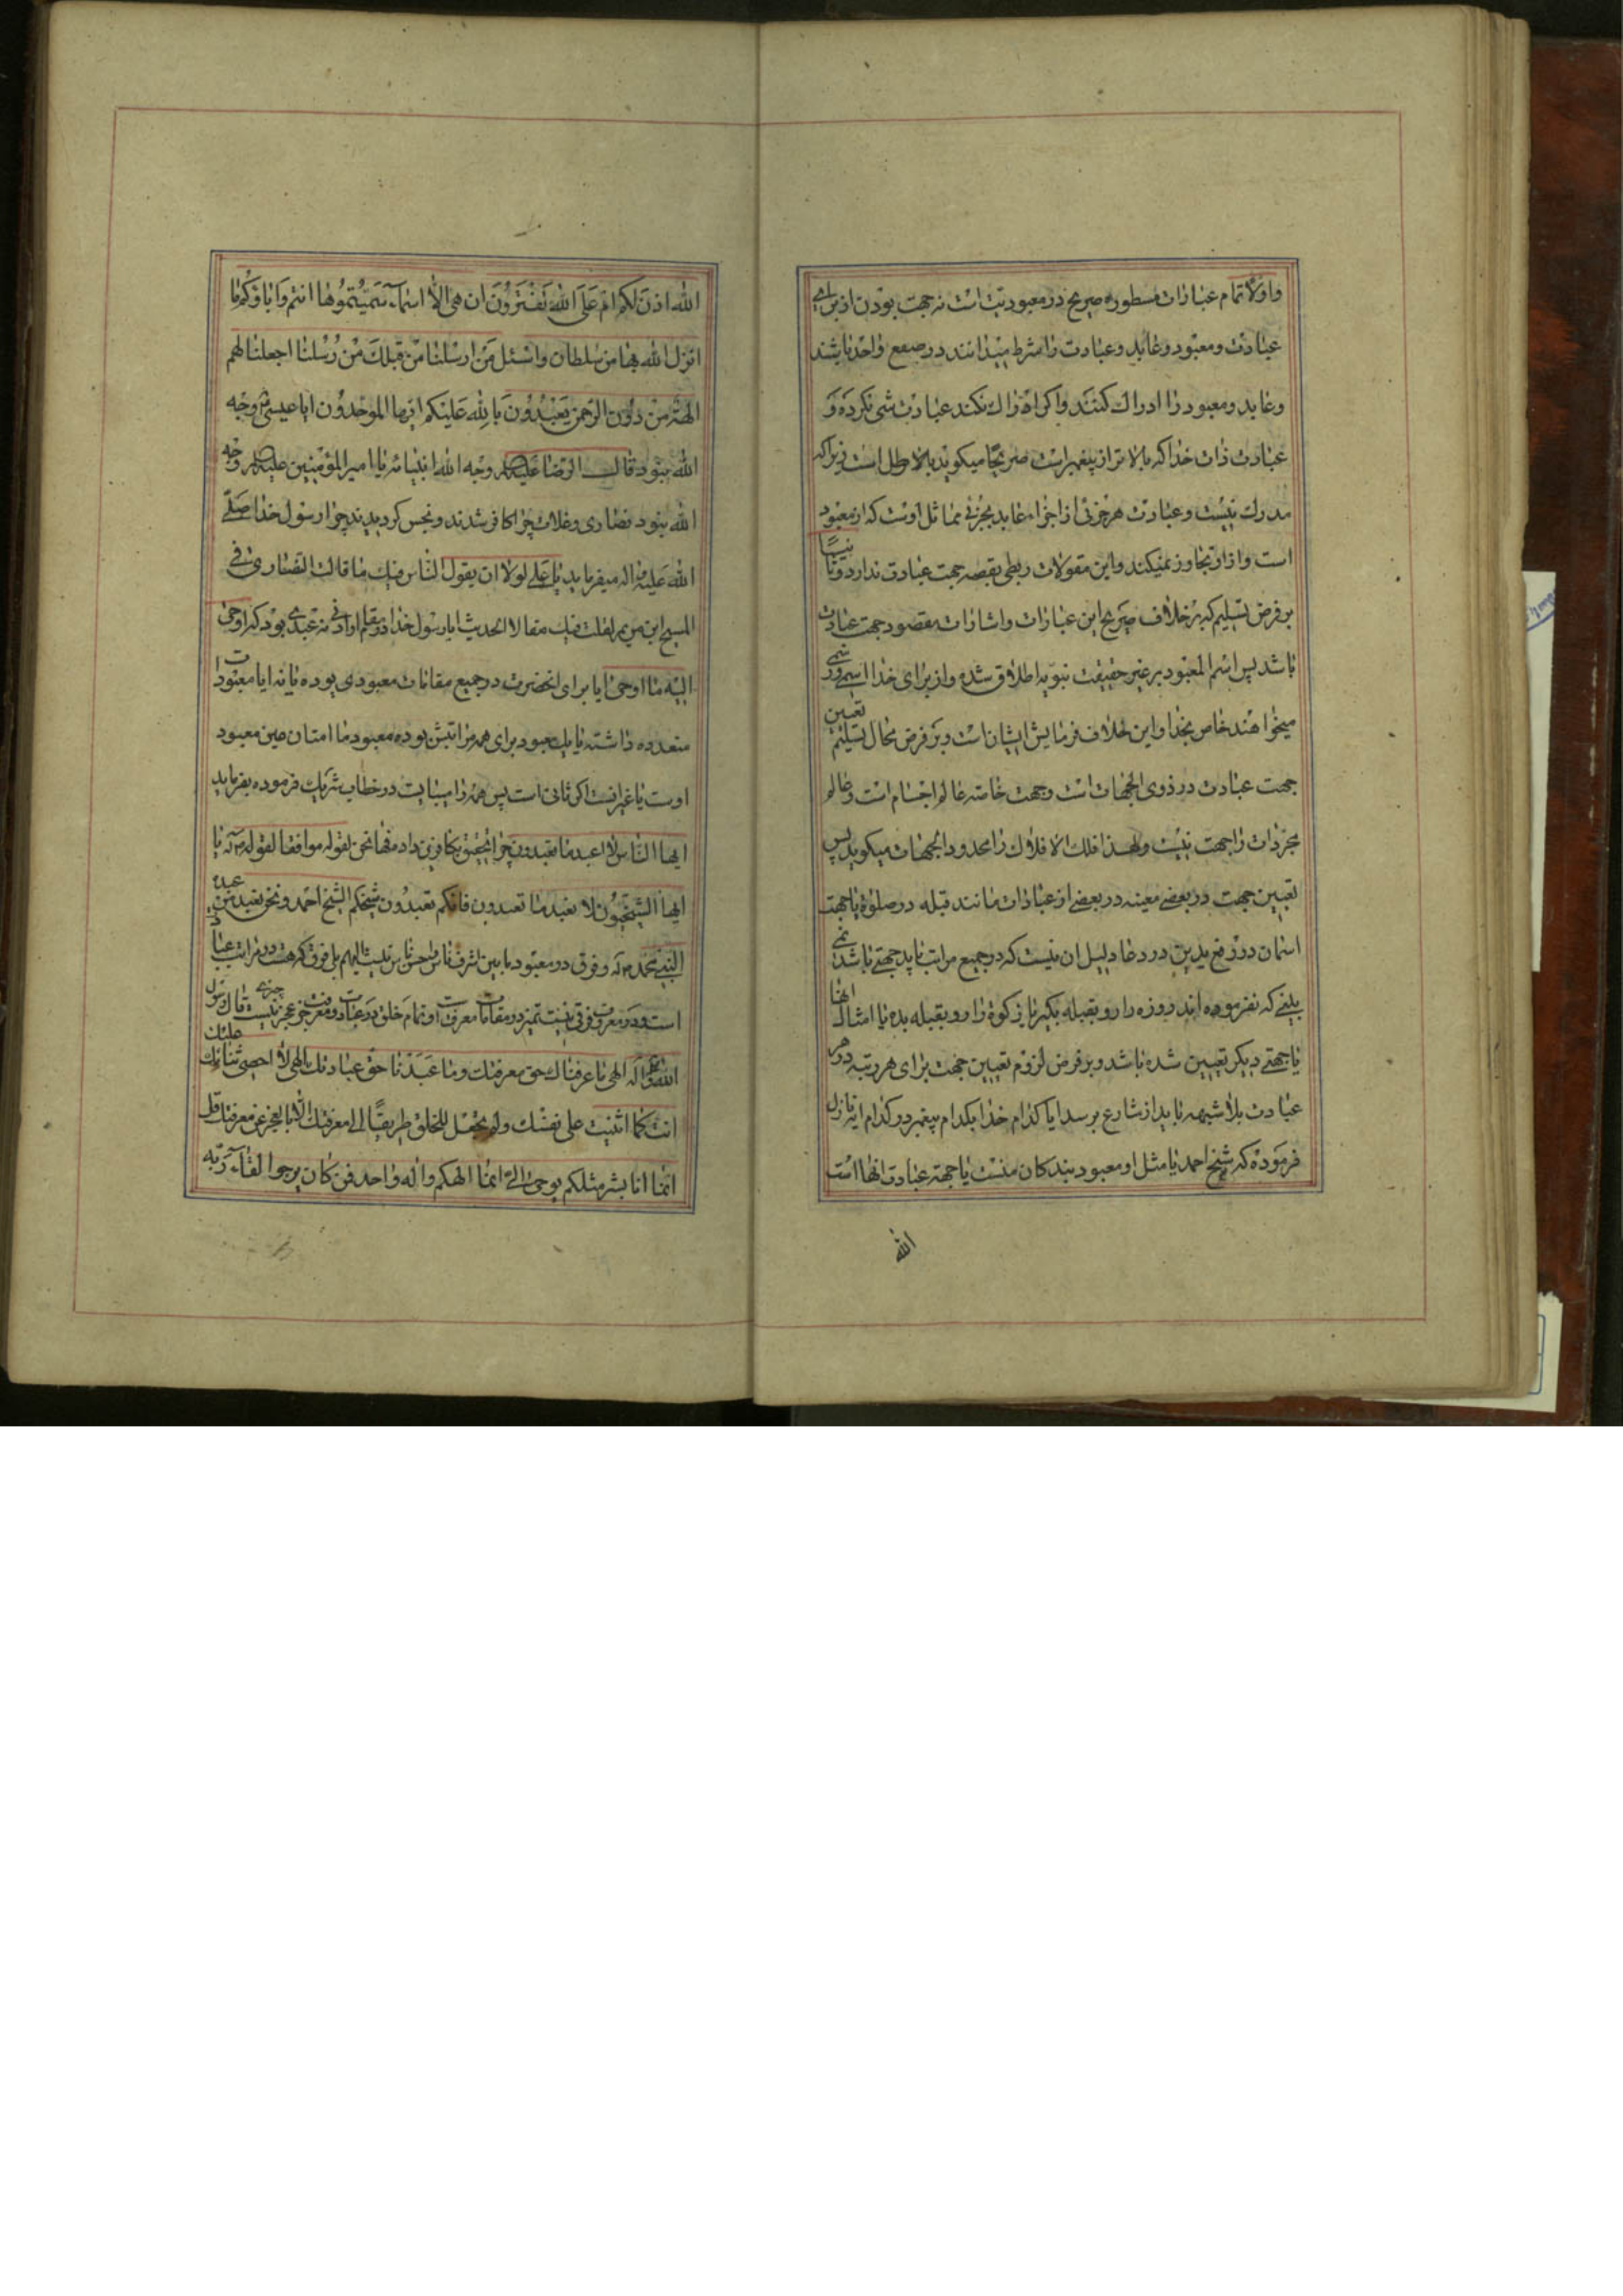 واولا تمام عبارات مسطوره صریح در معبودیت است نه جهت بودن از برای
عبادت و معبود و عابد و عبادت را شرط میدانند در صقع واحد باشند
و عابد و معبود را ادراک کنند و اگر ادراک نکند عبادت شی نکرده و
عبادت ذات خدا که بالاتر از پیغمبر است صریحا میگوید باطل است زیرا که
مدرک نیست و عبادت هر جزئی از اجزاء عابد بجزئی مماثل اوست که از معبود
است و از او تجاوز نمیکند و این مقولات ربطی بقصه جهت عبادت ندارد و ثانیا
بر فرض تسلیم که بر خلاف صریح این عبارات و اشارات مقصود جهت عبادت
باشد پس اسم المعبود بر غیر حقیقت نبویه اطلاق شده و از برای خدا اسمی و رسمی
میخواهند خاص بخدا و این خلاف فرمایش ایشان است و بر فرض محال تسلیم تعیین
جهت عبادت در ذوی الجهات است و جهت خاصه عالم اجسام است و عالم
مجردات را جهت نیست و لهذا فلک الافلاک را محدود الجهات میگوید پس
تعیین جهت در بعضی معینه در بعضی از عبادات مانند قبله در صلوة یا جهت
اسمان در رفع یدین در دعا دلیل ان نیست که در جمیع مراتب باید جهتی باشد نمی
بینی که نفرموده اند روزه دار رو بقبله بگیر یا زکوة را رو بقبله بده یا امثال انها
یا جهتی دیگر تعیین شده باشد و بر فرض لزوم تعیین جهت برای هر رتبه در هر
عبادت بلا شبهه باید از شارع برسد ایا کدام خدا بکدام پیغمبر در کدام ایه نازل
فرموده که شیخ احمد یا مثل او معبود بندگان منست یا جهة عبادت انها است
الله
الله اذن لکم ام علی الله تفترون ان هی الا اسماء سمیتموها انتم و اباؤکم ما
انزل الله بها من سلطان واسئل من ارسلنا من قبلک من رسلنا اجعلنا لهم
الهة من دون الرحمن یعبدون بالله علیکم ایها الموحدون ایا عیسی وجه
الله نبود قال الرضا علیه السلام وجه الله انبیائه یا امیر المؤمنین علیه السلام وجه
الله نبود نصاری و غلات چرا کافر شدند و نجس گردیدند چرا رسول خدا صلی
الله علیه و اله میفرماید یا علی لولا ان یقول الناس فیک ما قالت النصاری فی
المسیح ابن مریم لقلت فیک مقالا الحدیث ایا رسول خدا در مقام او ادنی نه عبدی بود که اوحی
الیه ما اوحی ایا برای انحضرت در جمیع مقامات معبودی بوده یا نه ایا معبودات
متعدده داشته یا یک معبود برای همه مراتبش بوده معبود ما امتان عین معبود
اوست یا غیر انست اگر ثانی است پس همه را میبایست در خطاب شریک فرموده بفرماید
ایها الناس لا اعبد ما تعبدون چرا تخصیص بکافرین داد فها نحن نقوله موافقا لقوله یا
ایها الشیخیون لا نعبد ما تعبدون فانکم تعبدون شیخکم الشیخ احمد و نحن نعبد من عبده
النبی محمد و فرق در معبود ما بین اشرف ناس و اخس ناس نیست الیهم بلی فرق که هست در مراتب عباد
است و در معرفت فرقی نیست تمیز در مقامات معرفت او تمام خلق در عبادت و معرفت جز عجز چیزی نیست قال رسول
الله الهی ما عرفناک حق معرفتک و ما عبدناک حق عبادتک الهی لا احصی ثنائک علیک
انت کما اثنیت علی نفسک و لم تجعل للخلق طریقا الی معرفتک الا بالعجز عن معرفتک قل
انما انا بشر مثلکم یوحی الی انما الهکم واله واحد فمن کان یرجوا لقاء ربه